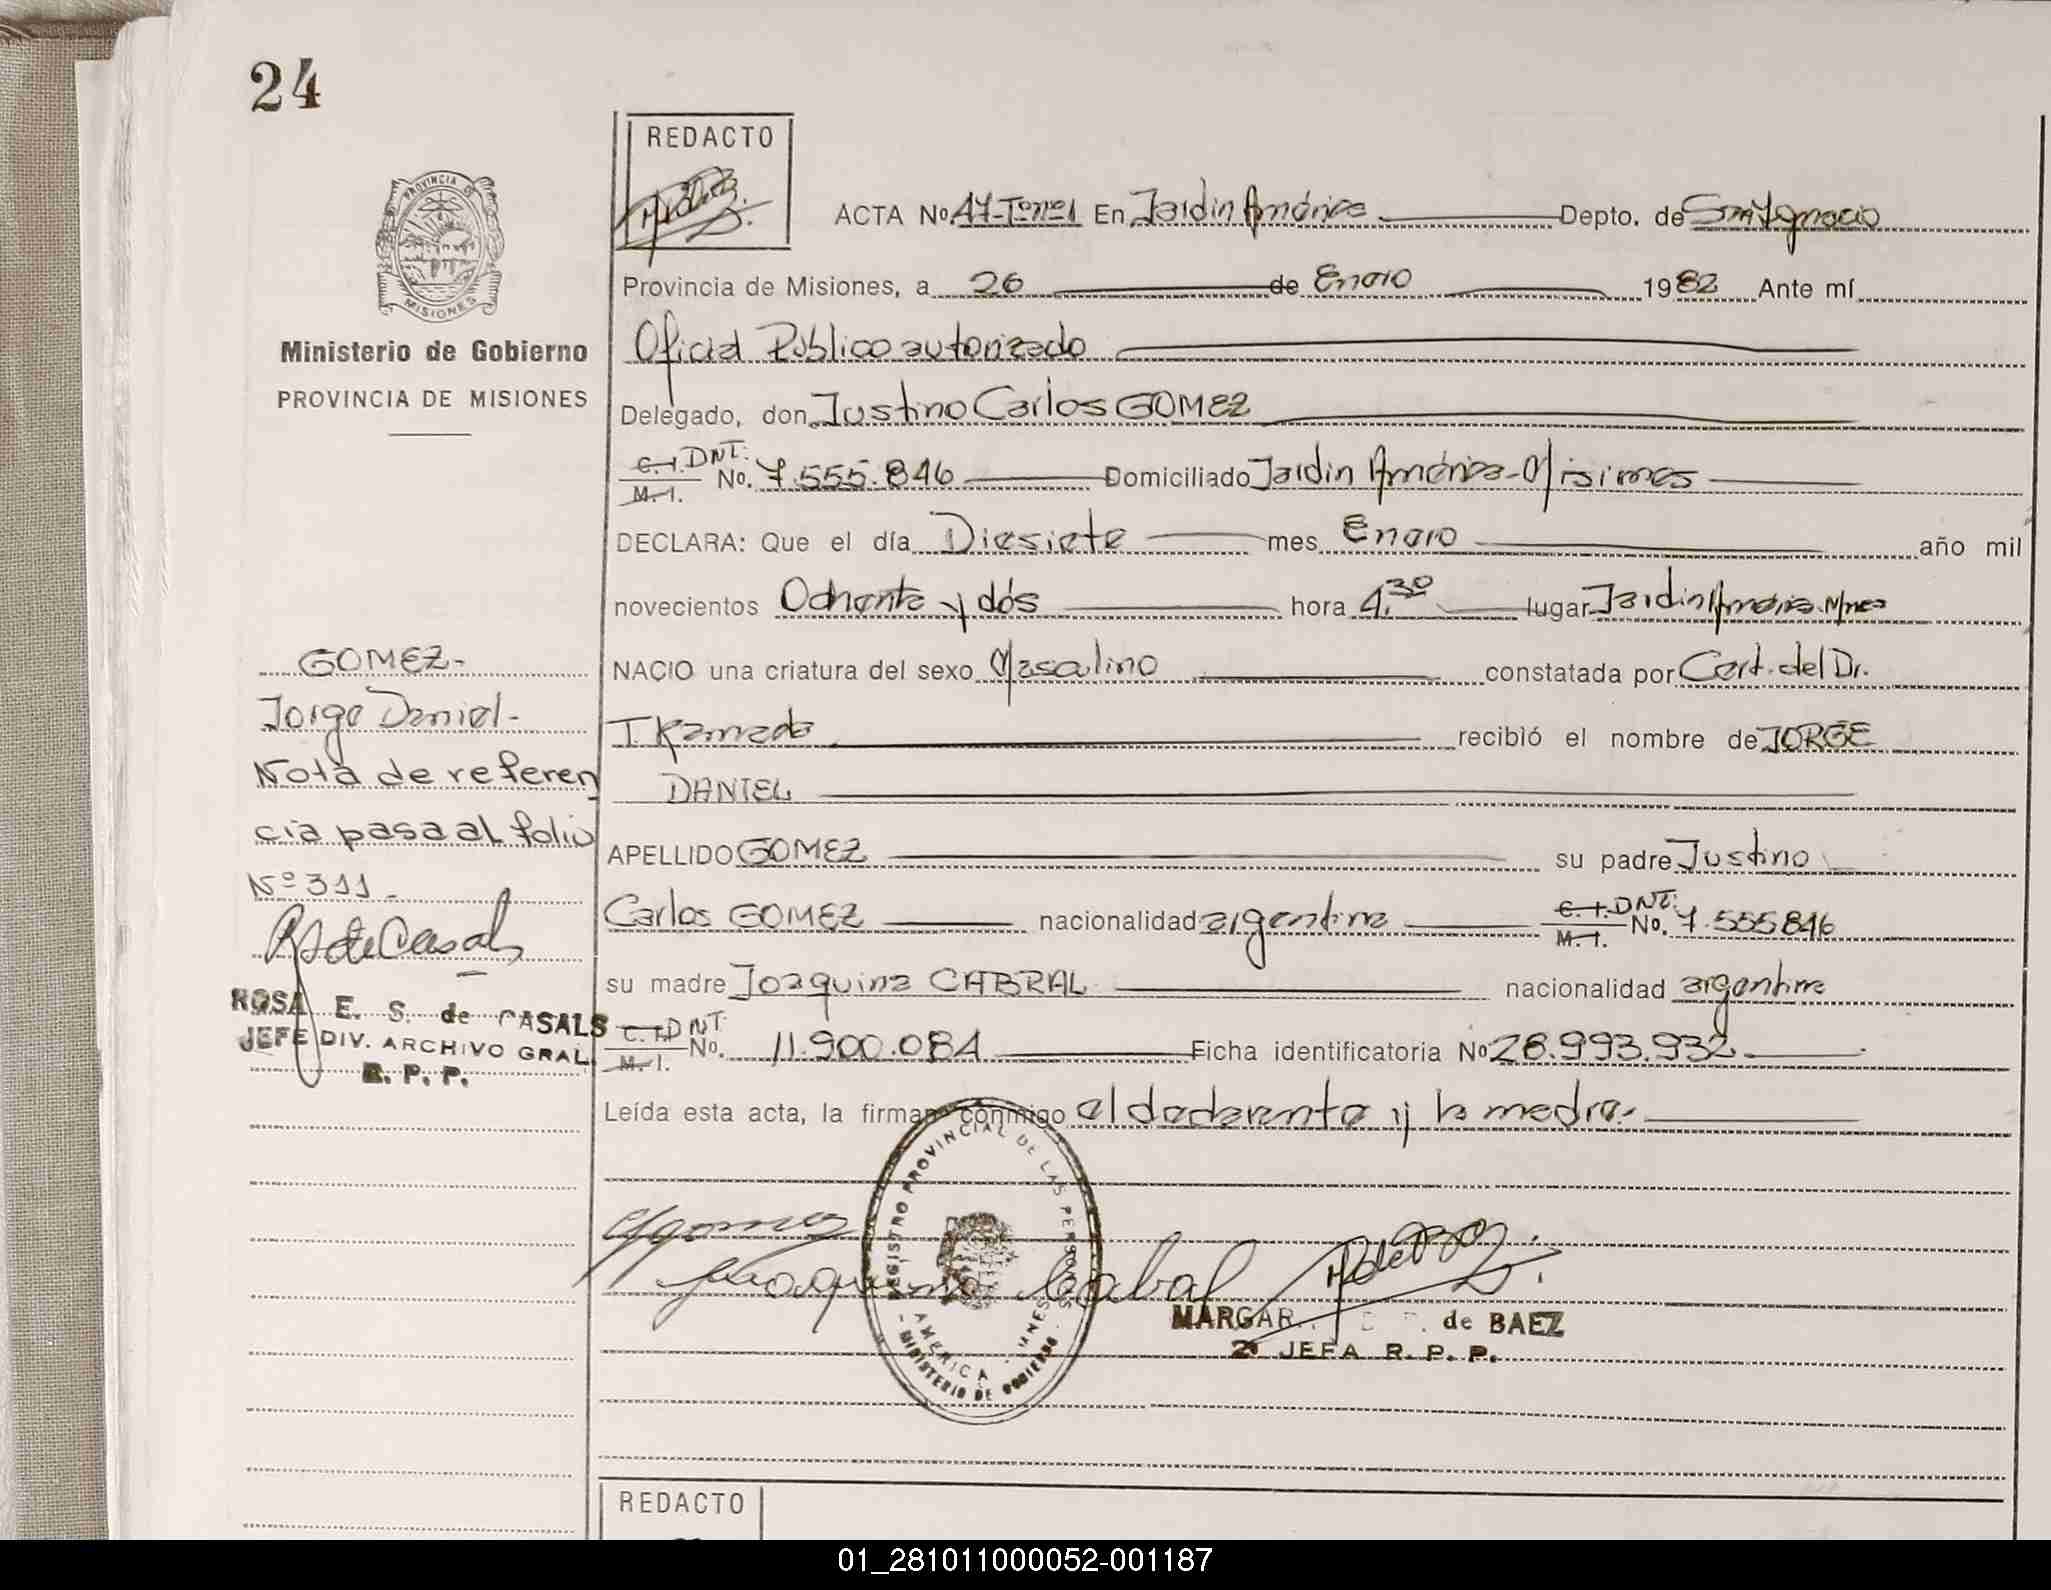 24
REDACTO
PROVINCIA DE
MISIONES
Ministerio de Gobierno
PROVINCIA DE MISIONES
ACTA No. 47-Tomo1 En Jardin América Depto. de San Ignacio
Provincia de Misiones, a 26 de Enero 1982 Ante mí
Oficial Público autorizado
Delegado, don Justino Carlos GOMEZ
C. I. DNI: M. I. No. 7.555.846 Domiciliado Jardin América-Misiones
DECLARA: Que el día Diesiete mes Enero año mil
novecientos Ochenta y dós hora 4.30 lugar Jardin América. Mnes
NACIO una criatura del sexo Masculino constatada por Cert. del Dr.
T. Kamada recibió el nombre de JORGE
DANIEL
APELLIDO GOMEZ su padre Justino
Carlos GOMEZ nacionalidad argentina C. I. DNI: M. I. No. 7.555846
su madre Joaquina CABRAL nacionalidad argentina
C. I. DNI M. I. No. 11.900.084 Ficha identificatoria No 28.993.932
Leída esta acta, la firman conmigo el declarante y la madre.
GOMEZ-
Jorge Daniel-
Nota de referen
cia pasa al folio
Nº 311-
RSdeCasals
ROSA E. S. de CASALS
JEFE DIV. ARCHIVO GRAL.
R. P. P.
REGISTRO PROVINCIAL DE LAS PERSONAS
AMERICA
MINISTERIO DE GOBIERNO
Joaquina Cabral
MARGAR de BAEZ
JEFA R. P. P.
REDACTO
01_281011000052-001187